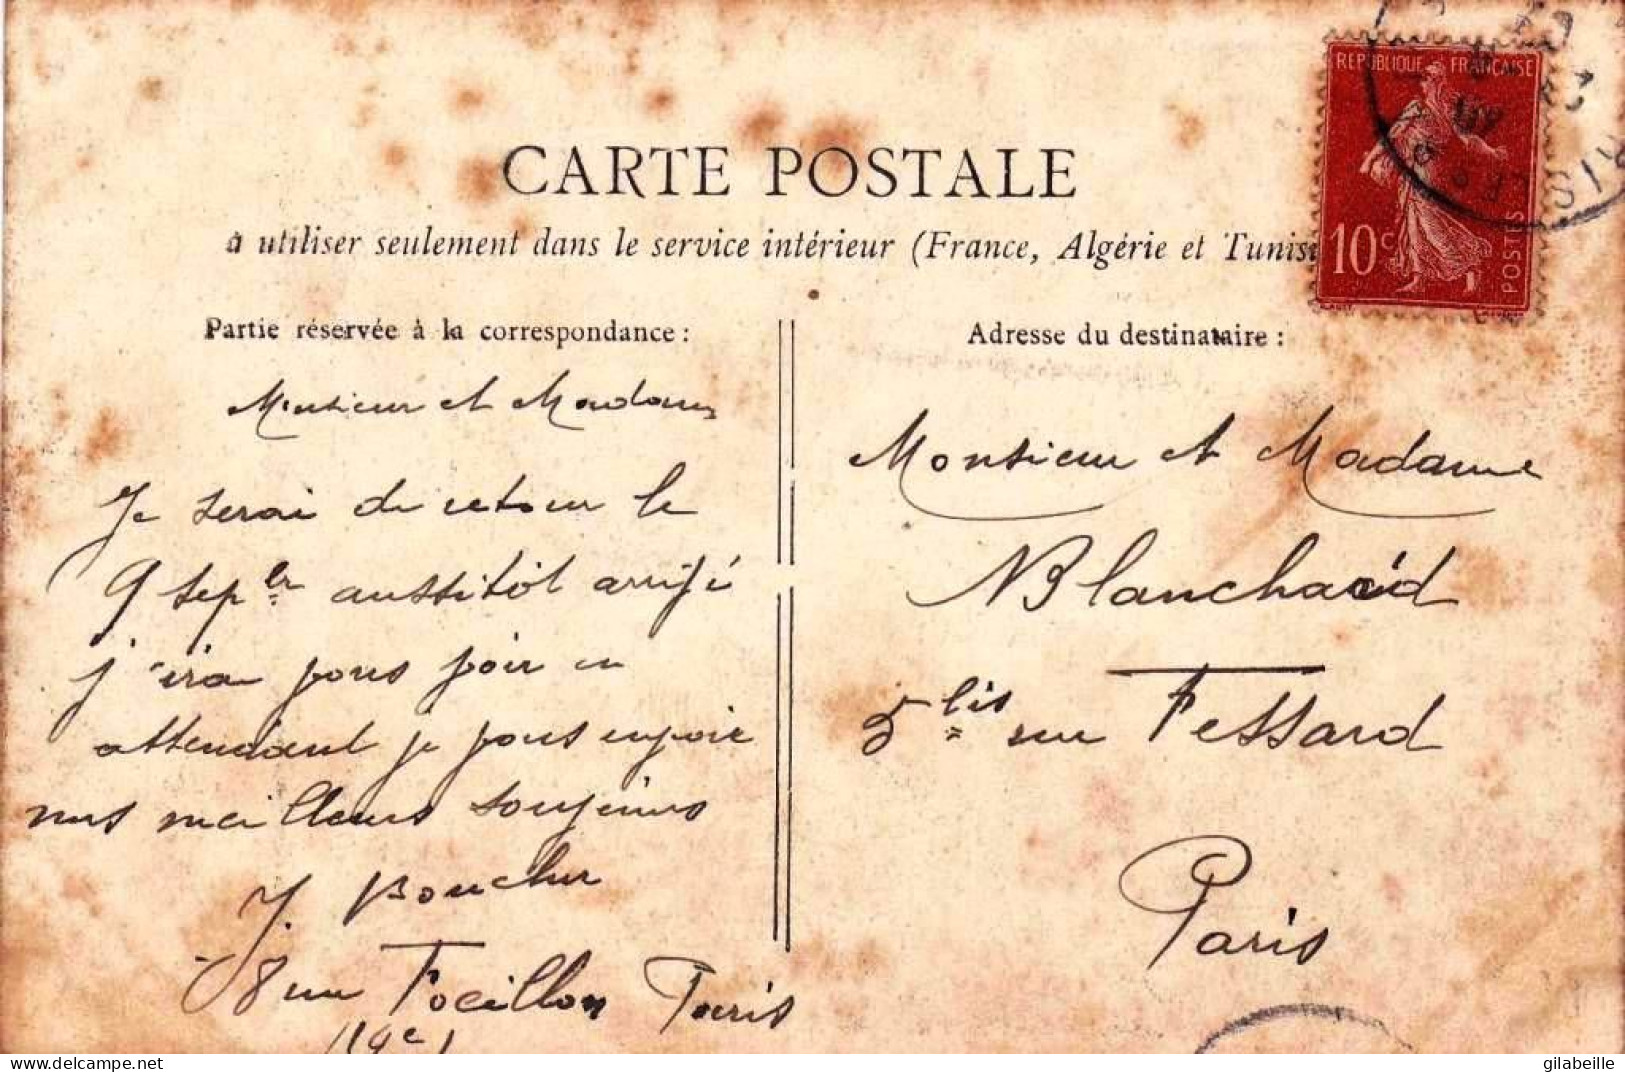 CARTE POSTALE
à utiliser seulement dans le service intérieur (France, Algérie et Tunisi
REPUBLIQUE FRANÇAISE
10c
POSTES
Partie réservée à la correspondance :
Monsieur et Madame
Je serai de retour le
9 septbr aussitôt arrivé
j'irai vous voir en
attendant je vous envoie
mes meilleurs souvenirs
J. Boucher
8 rue Focillon Paris
(14e)
Adresse du destinataire :
Monsieur et Madame
Blanchard
5 bis rue Fessard
Paris
gilabeille